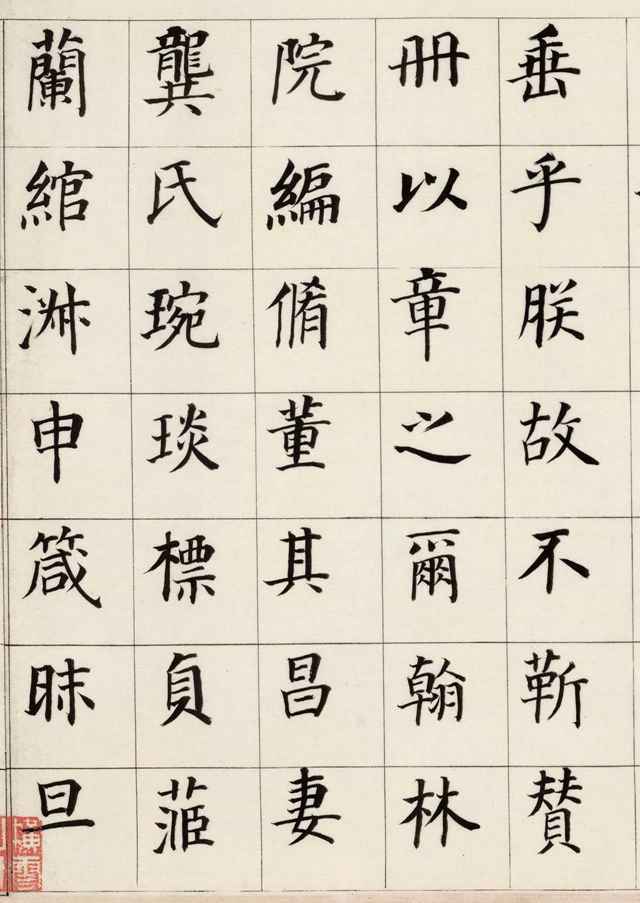 垂乎朕故不靳贊
冊以章之爾翰林
院編脩董其昌妻
龔氏琬琰標貞
蘭綰淑申箴昧旦